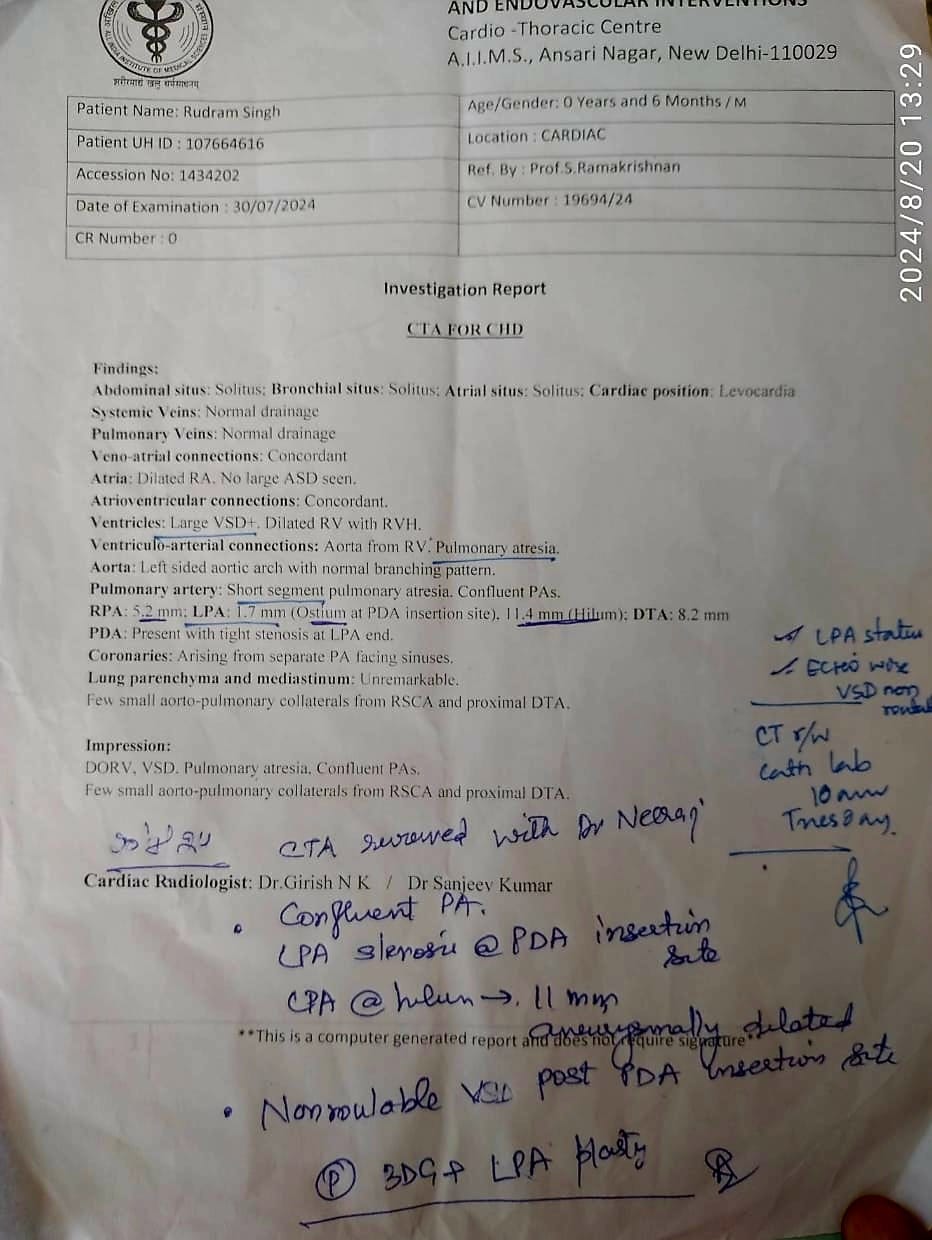 AND ENDOVASCULAR INTERVENTIONS
Cardio -Thoracic Centre
A.I.I.M.S., Ansari Nagar, New Delhi-110029
शरीरमाद्यं खलु धर्मसाधनम्
2024/8/20 13:29
Patient Name: Rudram Singh
Age/Gender: 0 Years and 6 Months / M
Patient UH ID : 107664616
Location : CARDIAC
Accession No: 1434202
Ref. By : Prof.S.Ramakrishnan
Date of Examination : 30/07/2024
CV Number : 19694/24
CR Number : 0
Investigation Report
CTA FOR CHD
Findings:
Abdominal situs: Solitus; Bronchial situs: Solitus; Atrial situs: Solitus; Cardiac position: Levocardia
Systemic Veins: Normal drainage
Pulmonary Veins: Normal drainage
Veno-atrial connections: Concordant
Atria: Dilated RA. No large ASD seen.
Atrioventricular connections: Concordant.
Ventricles: Large VSD+. Dilated RV with RVH.
Ventriculo-arterial connections: Aorta from RV. Pulmonary atresia.
Aorta: Left sided aortic arch with normal branching pattern.
Pulmonary artery: Short segment pulmonary atresia. Confluent PAs.
RPA: 5.2 mm; LPA: 1.7 mm (Ostium at PDA insertion site), 11.4 mm (Hilum); DTA: 8.2 mm
PDA: Present with tight stenosis at LPA end.
Coronaries: Arising from separate PA facing sinuses.
Lung parenchyma and mediastinum: Unremarkable.
Few small aorto-pulmonary collaterals from RSCA and proximal DTA.
LPA status
ECHO wise
VSD non
CT r/w
Cath lab
10 am
Tuesday.
Impression:
DORV, VSD. Pulmonary atresia, Confluent PAs.
Few small aorto-pulmonary collaterals from RSCA and proximal DTA.
CTA reviewed with Dr Neeraj
Cardiac Radiologist: Dr.Girish N K / Dr Sanjeev Kumar
Confluent PA.
LPA stenosis @ PDA insertion
Site
LPA @ hilum → 11 mm
aneurysmally dilated
**This is a computer generated report and does not require signature**
Nonroutable VSD post PDA insertion site
Ⓟ 3DG + LPA plasty